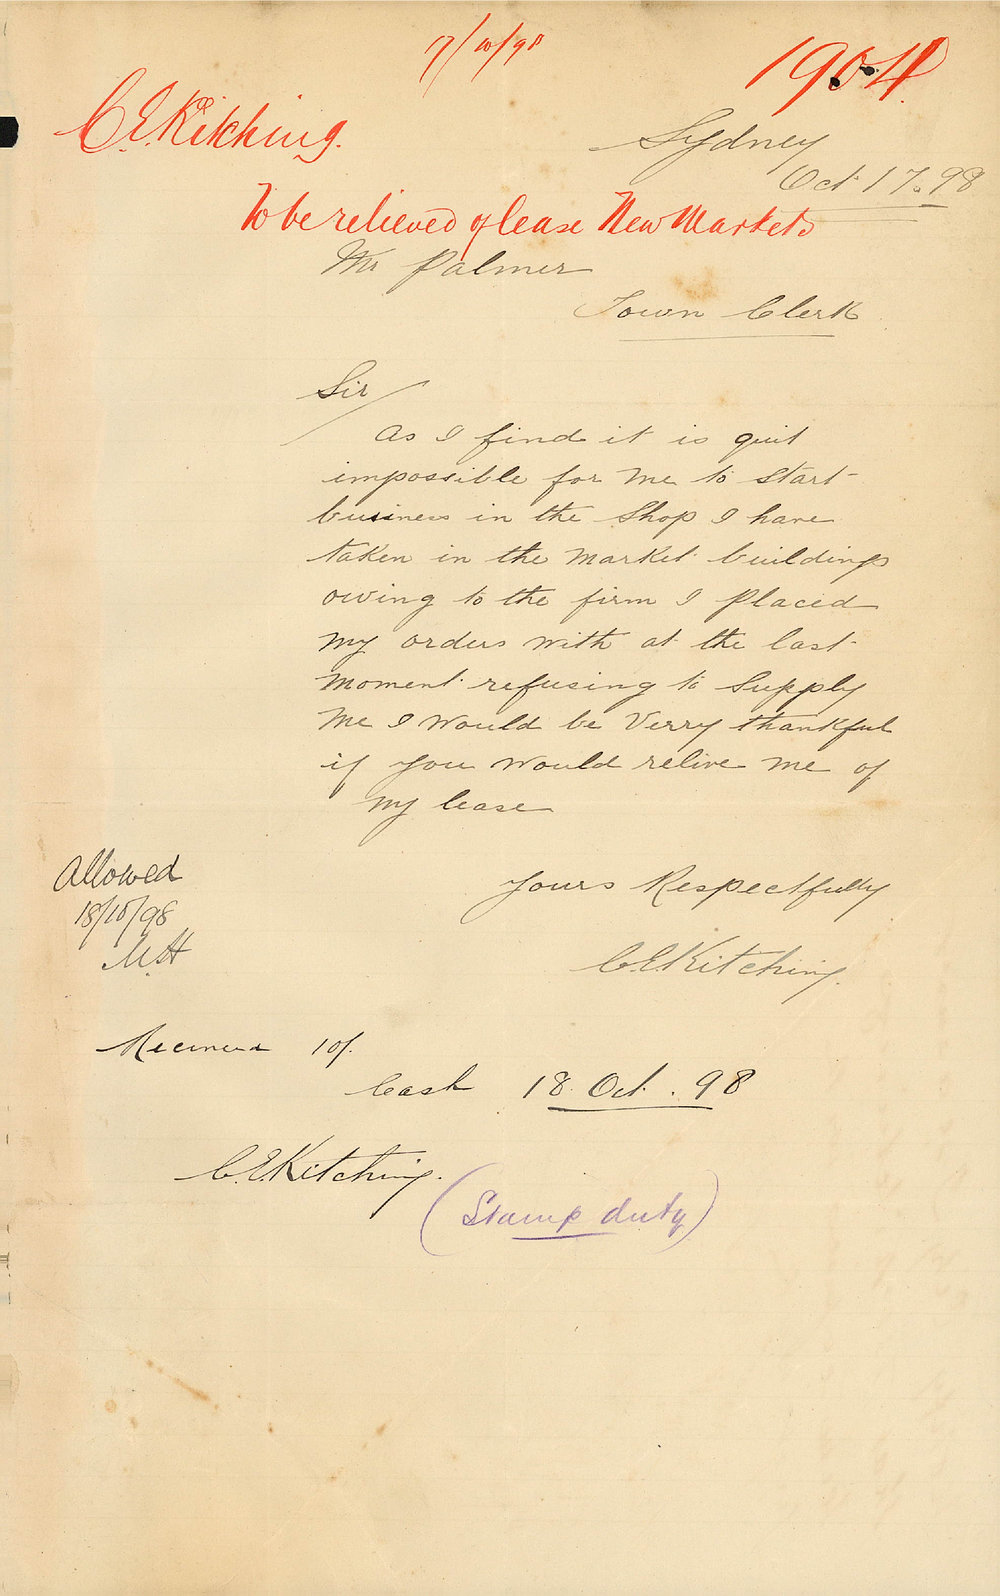 17/10/98
1904
C.E. Kitching.
Sydney
Oct 17. 98
To be relieved of lease New Markets
Mr Palmer
Town Clerk
Sir/
As I find it is quit
impossible for me to start
business in the Shop I have
taken in the Market buildings
owing to the firm I placed
my orders with at the last
moment refusing to Supply
me I would be Verry thankful
if you would relive me of
my lease
Yours Respectfully
C.E. Kitching.
Allowed
18/10/98
Received 10/.
Cash 18 Oct. 98
C.E. Kitching.
(Stamp duty)